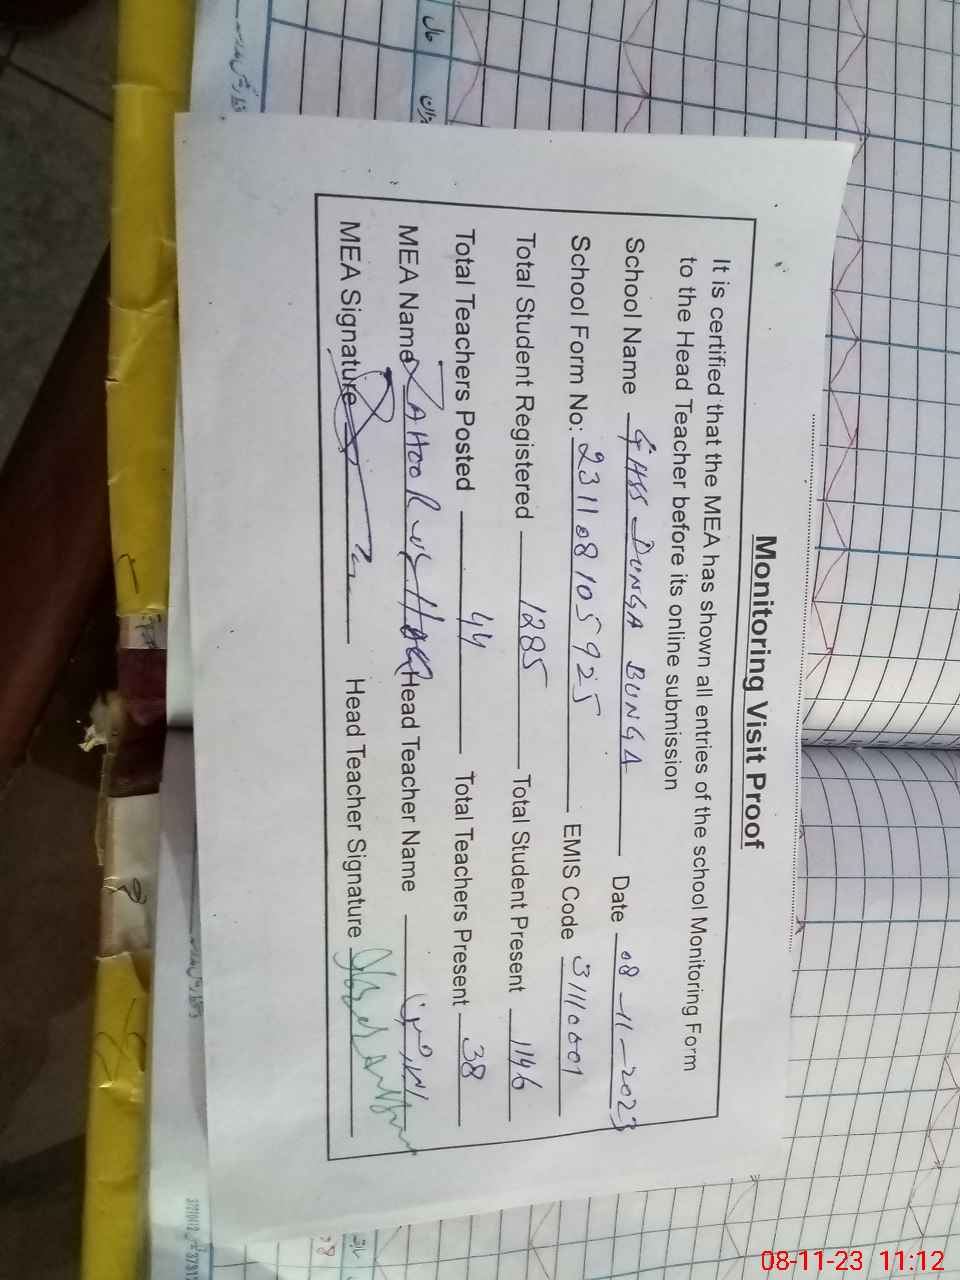 Monitoring Visit Proof
It is certified that the MEA has shown all entries of the school Monitoring Form
to the Head Teacher before its online submission
School Name GHSS DUNGA BUNGA Date 08-11-2023
School Form No: 231108105925 EMIS Code 31110001
Total Student Registered 1285 Total Student Present 1146
Total Teachers Posted 44 Total Teachers Present 38
MEA Name ZAHOOR UL HAQ Head Teacher Name
MEA Signature Head Teacher Signature
08-11-23 11:12